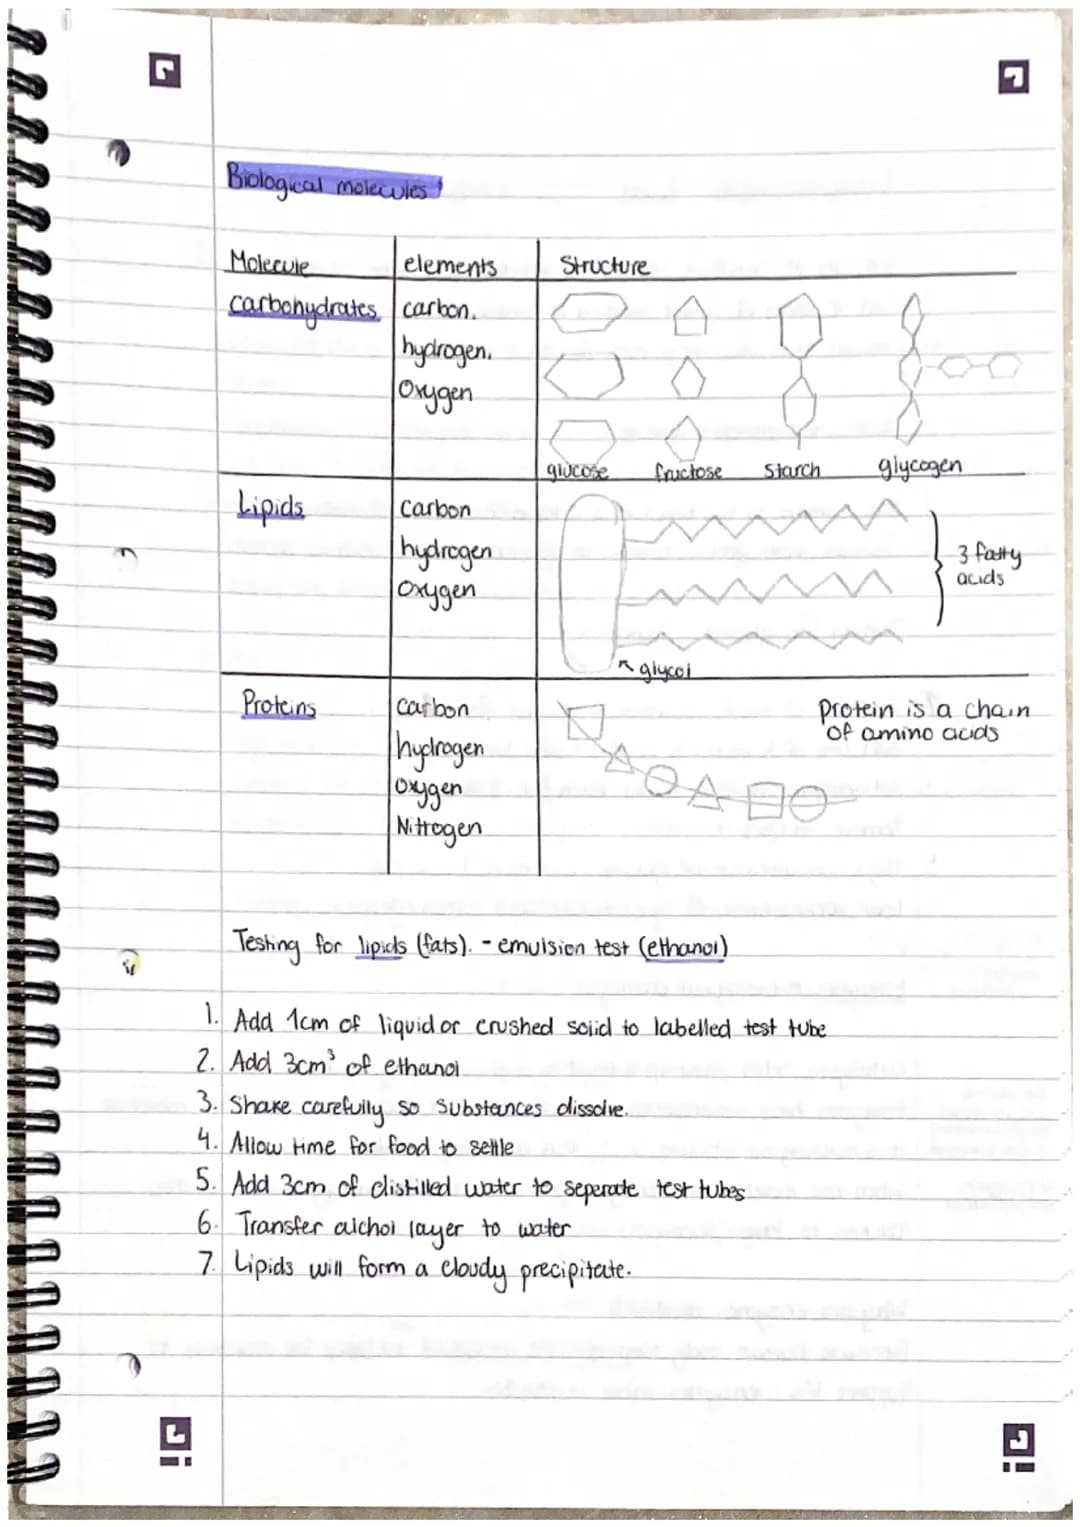 Biological molecules
Molecule elements Structure
carbohydrates carbon.
hydrogen.
Oxygen
glucose fructose Starch glycogen
Lipids Carbon
hydrogen
Oxygen
3 fatty
acids
glycol
Proteins Carbon
hydrogen
Oxygen
Nitrogen
Protein is a chain
of amino acids
Testing for lipids (fats). - emulsion test (ethanol)
1. Add 1cm of liquid or crushed solid to labelled test tube
2. Add 3cm³ of ethanol
3. Shake carefully so Substances dissolve.
4. Allow time for food to settle
5. Add 3cm of distilled water to seperate test tubes
6. Transfer alchol layer to water
7. Lipids will form a cloudy precipitate.